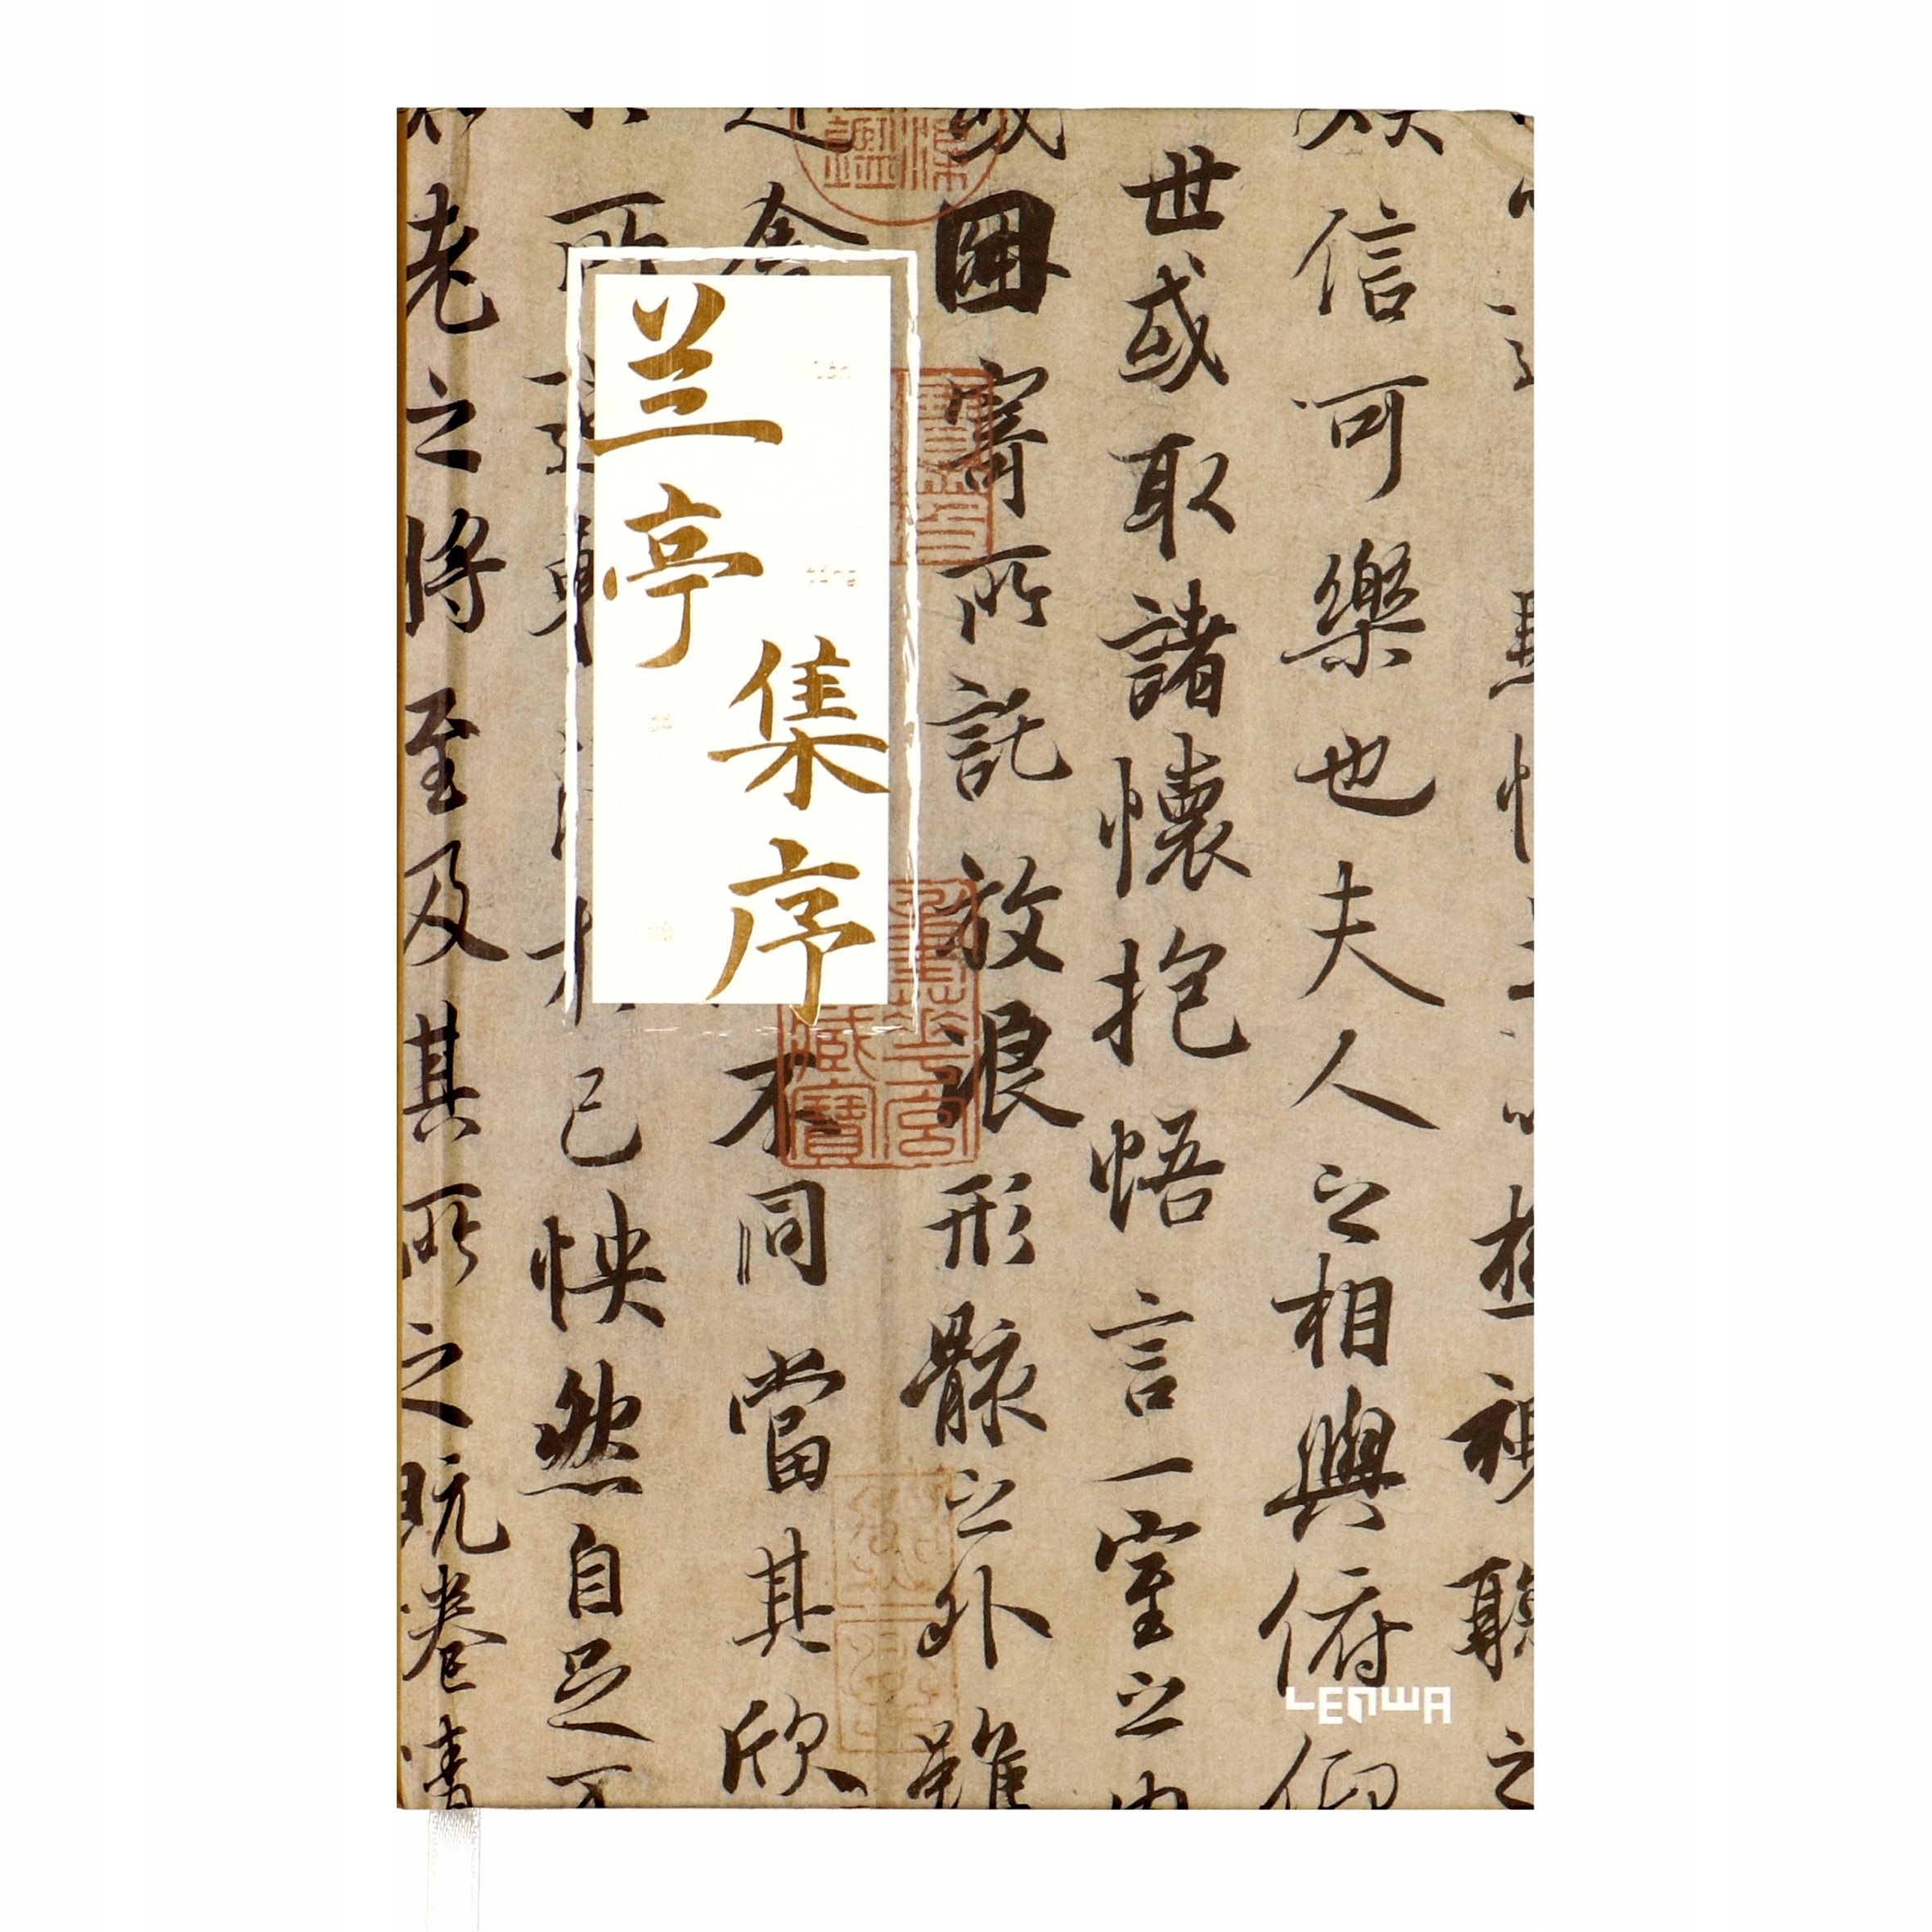 兰亭
集序
信可樂也夫人之相與俯仰
世或取諸懷抱悟言一室之内
或因寄所託放浪形骸之外雖
舍不同當其欣
所己怏然自足不
老之將至及其所之既惓情
LENWA